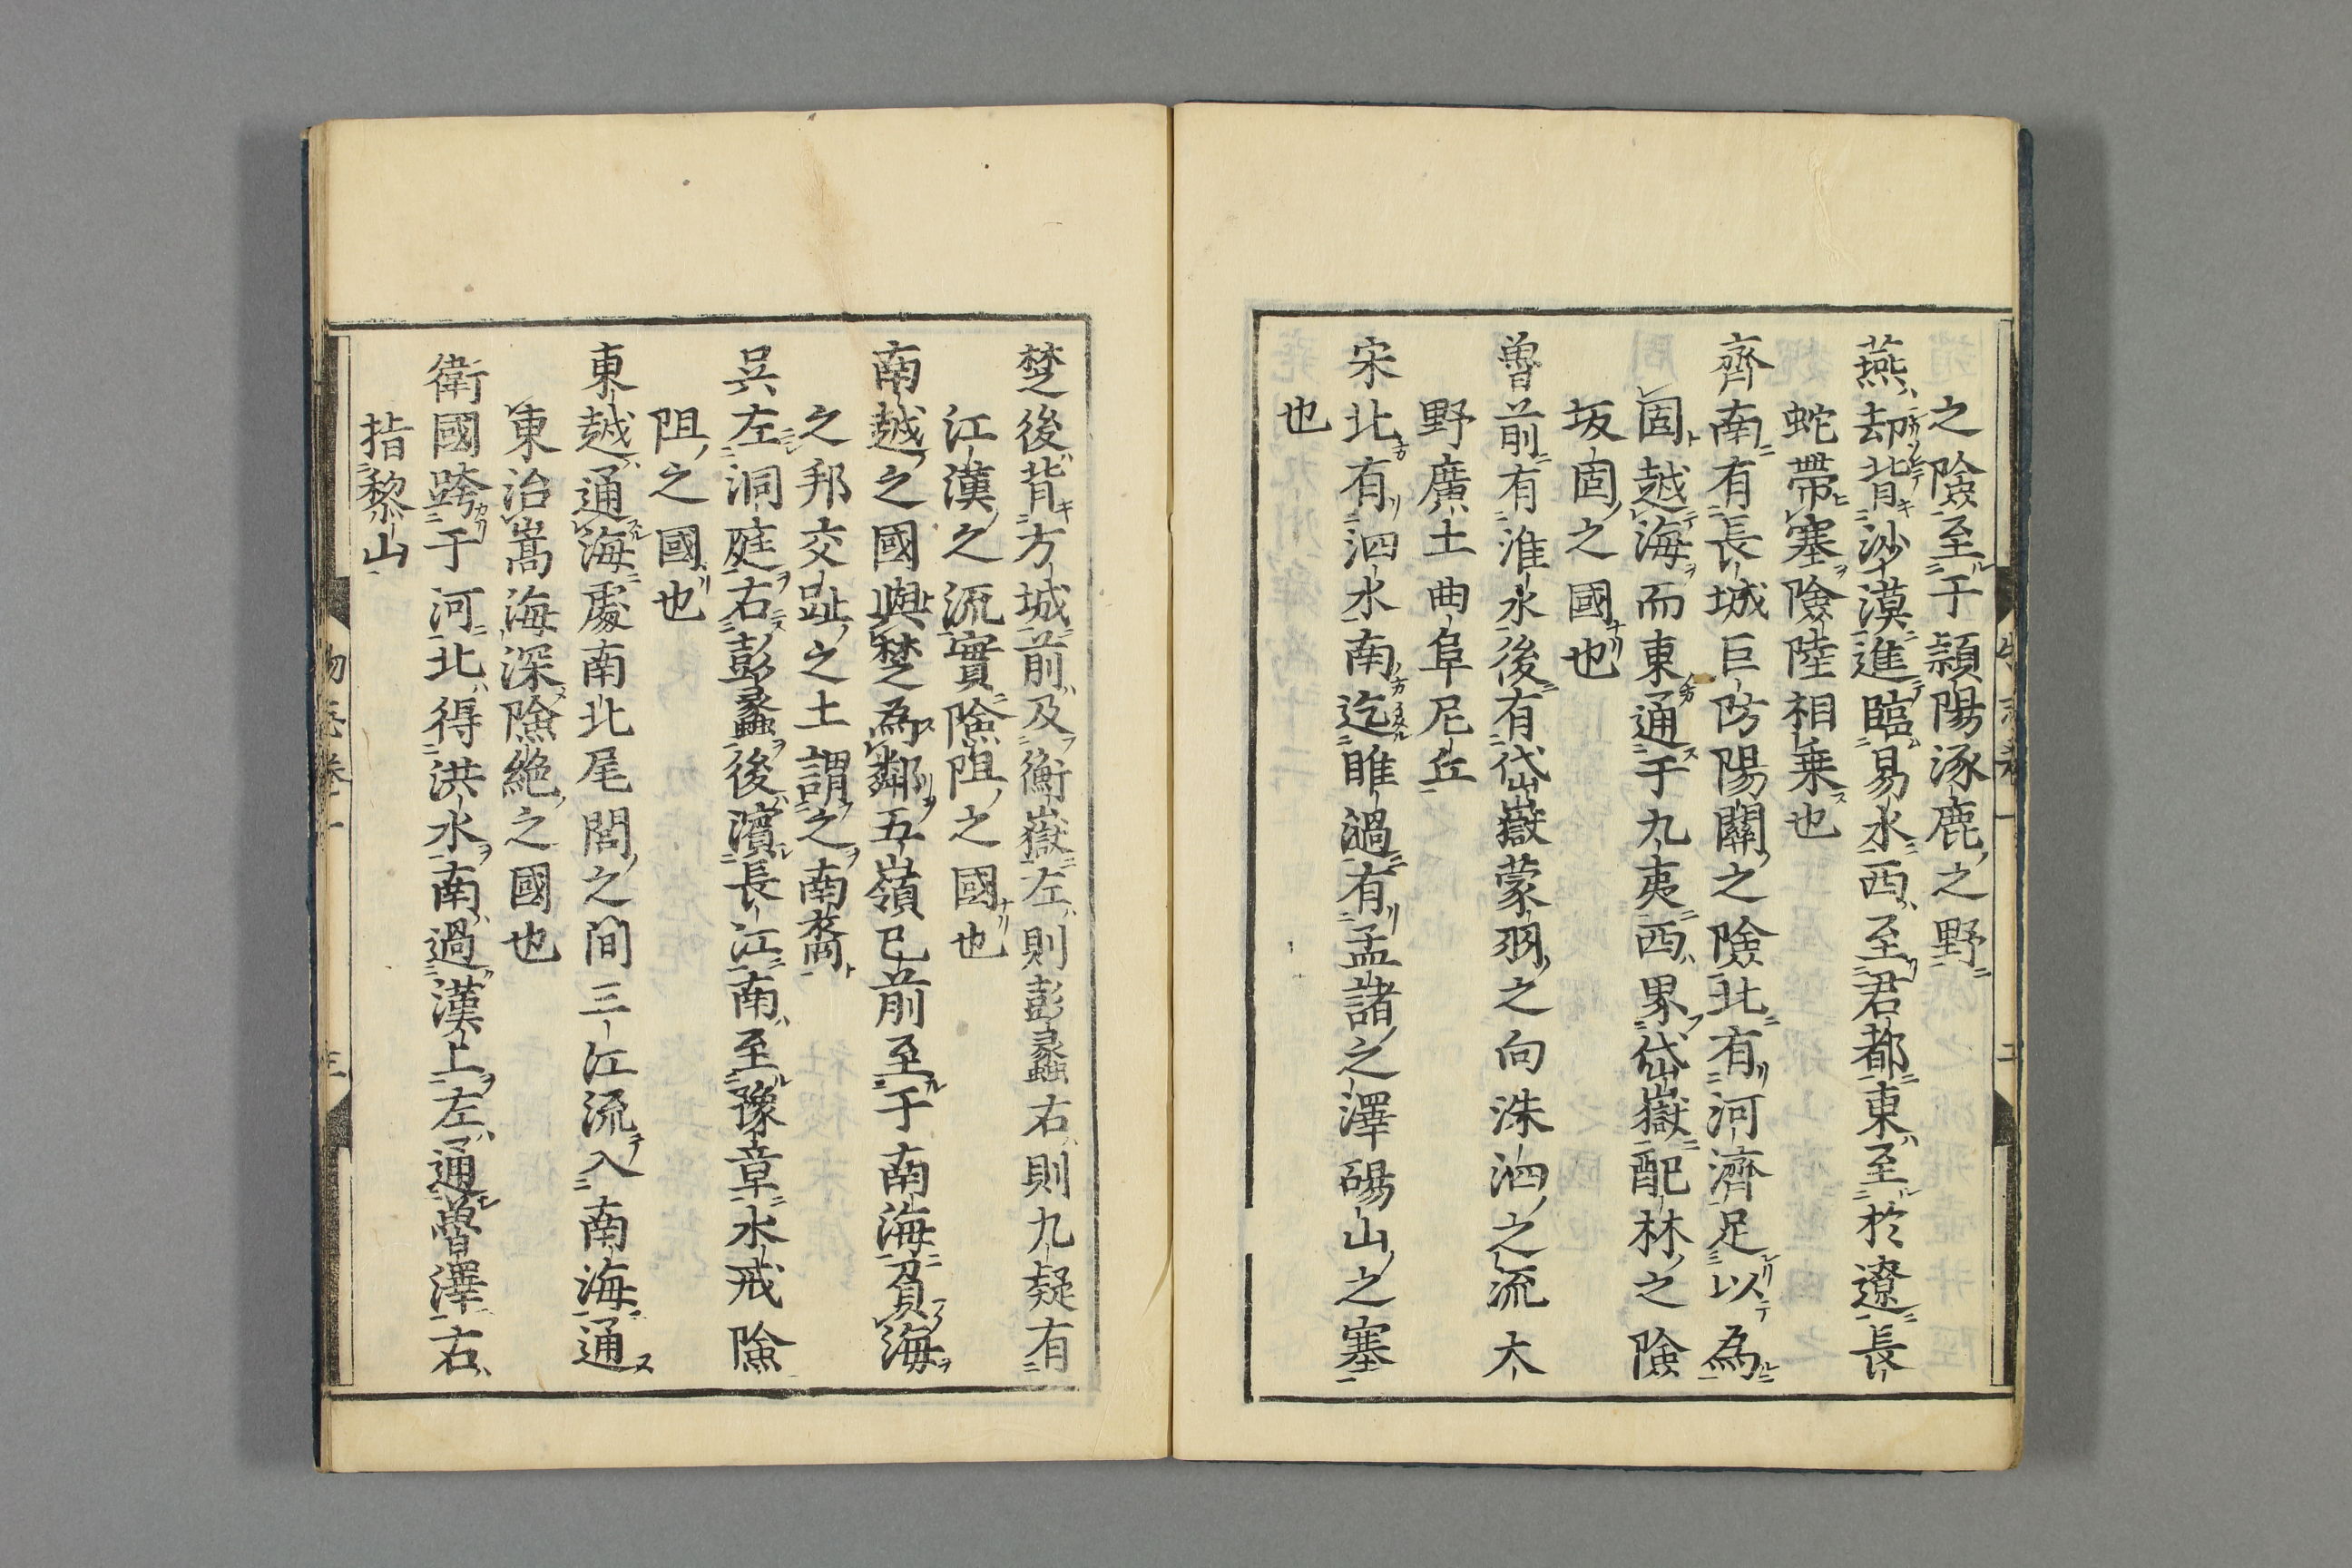 之險至于頴陽涿鹿之野
燕却背沙漠進臨易水西至君都東至於遼長
蛇帶塞險陸相乗也
齊南有長城巨防陽關之險北有河濟足以為
固越海而東通于九夷西界岱嶽配林之險
坂固之國也
魯前有淮水後有岱嶽蒙羽之向洙泗之流大
野廣土曲阜尼丘
宋北有泗水南迄睢濄有孟諸之澤碭山之塞
也
楚後背方城前及衡嶽左則彭蠡右則九疑有
江漢之流實險阻之國也
南越之國與楚為鄰五嶺已前至于南海負海
之邦交趾之土謂之南裔
吳左洞庭右彭蠡後濱長江南至豫章水戒險
阻之國也
東越通海處南北尾閭之間三江流入南海通
東治嵩海深險絶之國也
衛國跨于河北得洪水南過漢上左通魯澤右
指黎山
物志卷一
三